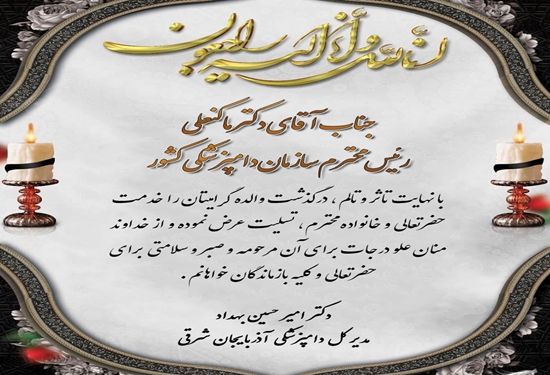 انا لله و انا الیه راجعون
جناب آقای دکتر ماکنعلی
رئیس محترم سازمان دامپزشکی کشور
با نهایت تاثر و تالم ، درگذشت والده گرامیتان را خدمت
حضرتعالی و خانواده محترم ، تسلیت عرض نموده و از خداوند
منان علو درجات برای آن مرحومه و صبر و سلامتی برای
حضرتعالی و کلیه بازماندگان خواهانم .
دکتر امیر حسین بهداد
مدیر کل دامپزشکی آذربایجان شرقی